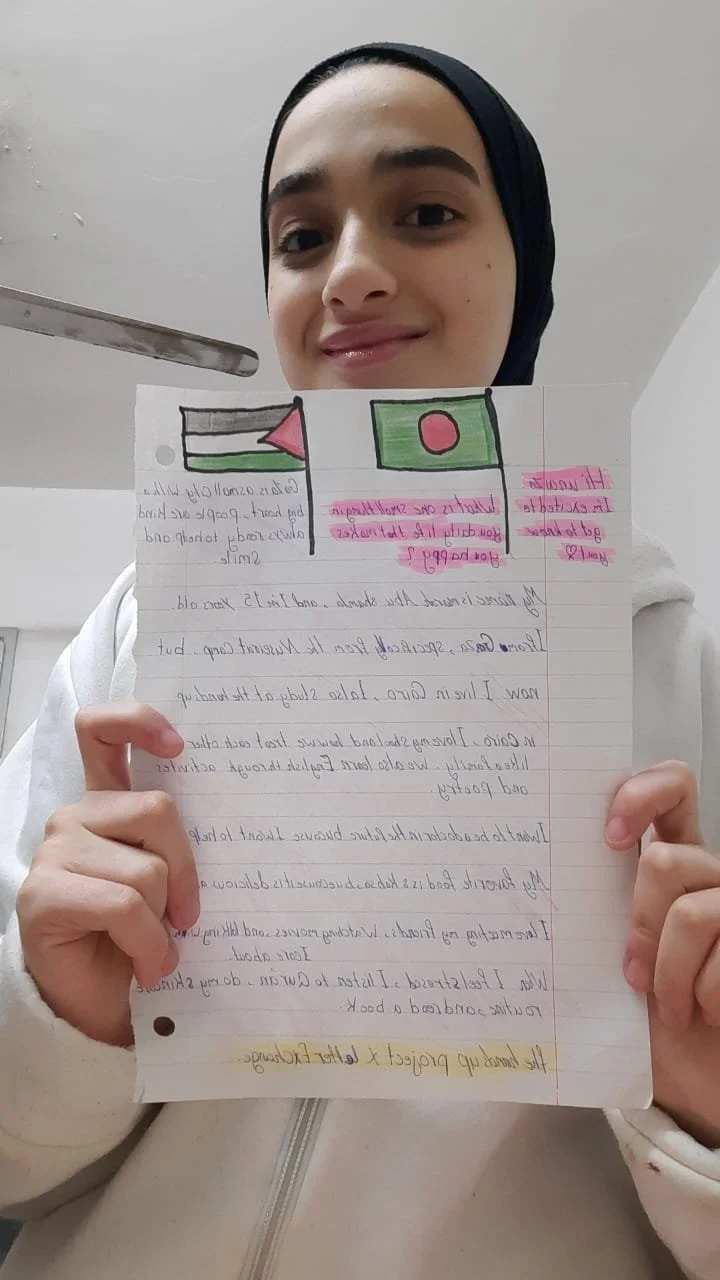 Hi unaiza
I'm excited to
get to know
you! ♡
What is one small thing in
you daily life that makes
you happy?
Gaza is a small city with a
big heart, people are kind
always ready to help and
smile
My name is Abu shamla, and I'm 15 years old.
I from Gaza, specifically from the Nuseirat Camp. but
now I live in Cairo. I also study at the hands up
in Cairo, I love my shcool and how we treat each other
like a family. we also learn English through activites
and poetry.
I want to be a doctor in the future bucause I want to help
My favorite food is kabsa, because it is delicious
I love meeting my friends, watching movies, and talking
I care about
When I feel stresed, I listen to Qur'an, do my skincare
routine, and read a book
the hands up project x letter Exchange.